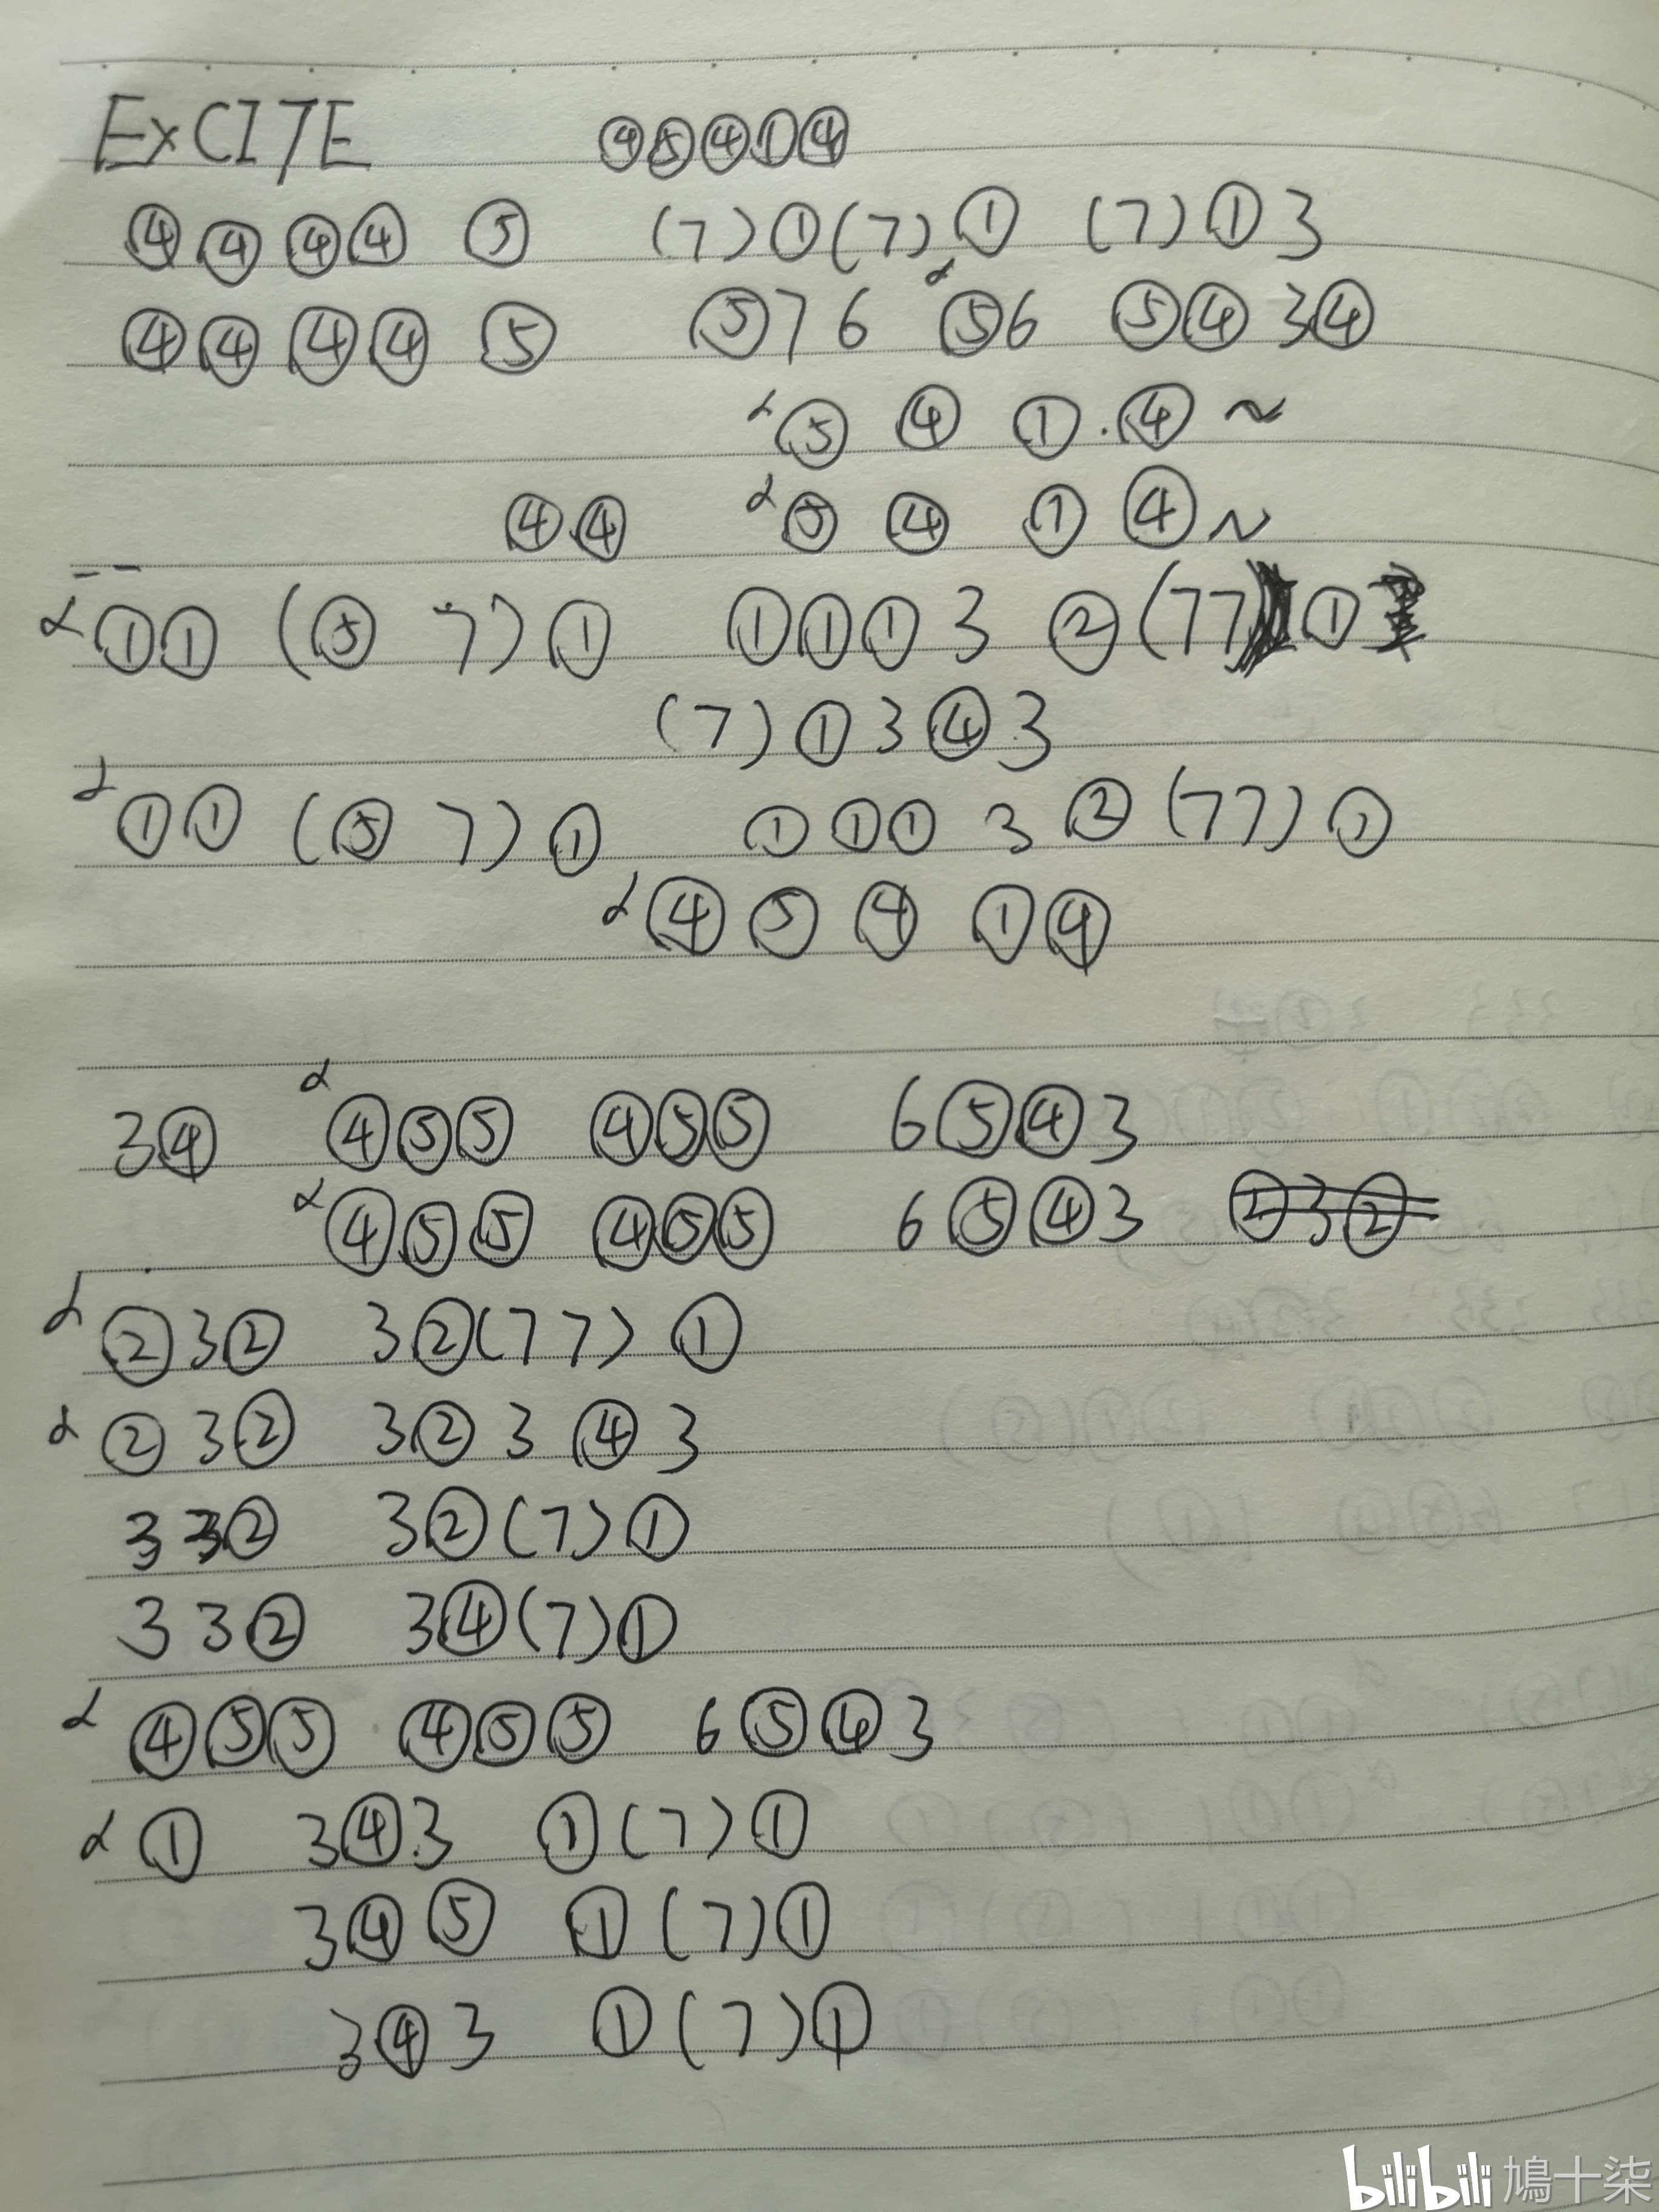 ExCITE ④⑤④①④
④④④④ ⑤ (7)①(7)① (7)①3
④④④④ ⑤ ⑤76 ⑤6 ⑤④3④
⑤ ④ ①.④~
④④ ⑤ ④ ① ④~
①① (⑤ 7)① ①①①3 ②(77)①
(7)①3④3
①① (⑤ 7)① ①①①3②(77)①
④⑤④ ①④
3④ ④⑤⑤ ④⑤⑤ 6⑤④3
④⑤⑤ ④⑤⑤ 6⑤④3 ②3②
②3② 3②(77)①
②3② 3②3④3
33② 3②(7)①
33② 3④(7)①
④⑤⑤ ④⑤⑤ 6⑤④3
① 3④3 ①(7)①
3④⑤ ①(7)①
3④3 ①(7)①
bilibili 鳩十柒